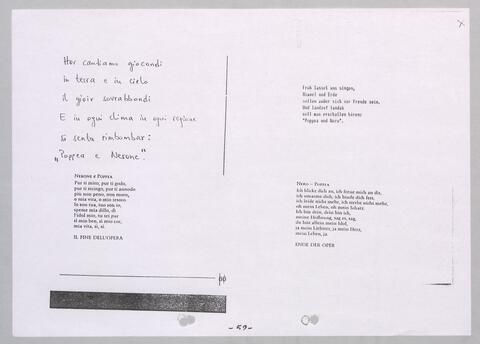 Hor cantiamo giocondi
in terra e in cielo
Il gioir sovrabbondi
E in ogni clima in ogni regione
si senta rimbombar:
„Poppea e Nerone."
NERONE E POPPEA
Pur ti miro, pur ti godo,
pur ti stringo, pur t'annodo
più non peno, non moro,
o mia vita, o mio tesoro.
Io son tua, tuo son io,
speme mia dillo, di
l'idol mio, tu sei pur
sì mio ben, sì mio cor,
mia vita, sì, sì.
IL FINE DELL'OPERA
Froh lasset uns singen,
Himmel und Erde
sollen
sich vor Freude sein.
Und landauf landab
soll man erschallen hören:
"Poppea und Nero".
NERO – POPPEA
Ich blicke dich an, ich freue mich an dir,
ich umarme dich, ich binde dich fest,
ich leide nicht mehr, ich sterbe nicht mehr,
oh mein Leben, oh mein Schatz.
Ich bin dein, dein bin ich,
meine Hoffnung, sag es, sag,
du bist allein mein Idol,
ja mein Liebster, ja mein Herz,
mein Leben, ja.
ENDE DER OPER
- 59 -